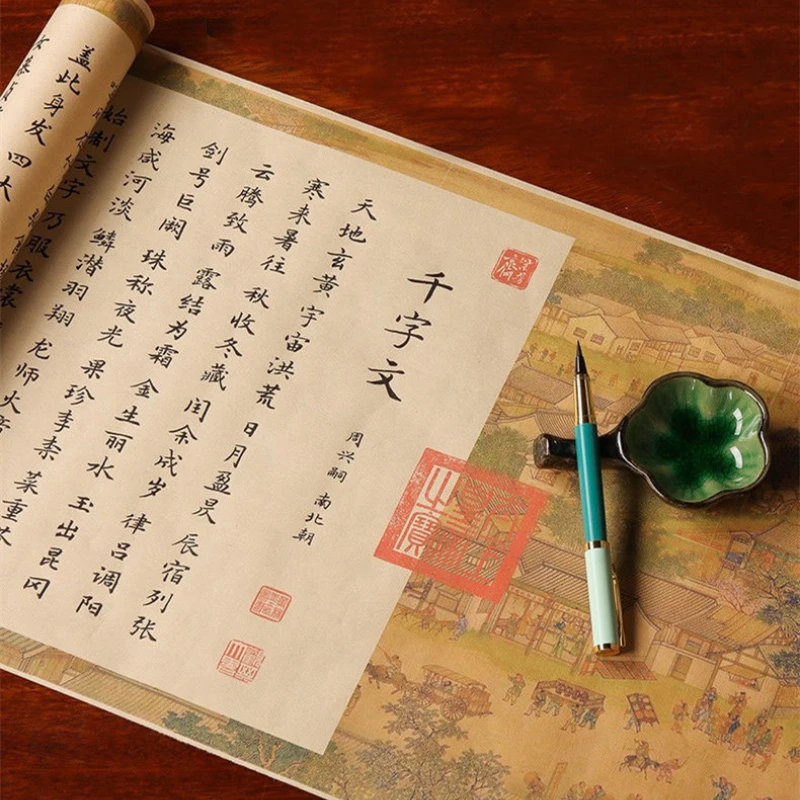 千字文
周兴嗣 南北朝
天地玄黄 宇宙洪荒 日月盈昃 辰宿列张
寒来暑往 秋收冬藏 闰余成岁 律吕调阳
云腾致雨 露结为霜 金生丽水 玉出昆冈
剑号巨阙 珠称夜光 果珍李柰 菜重芥
海咸河淡 鳞潜羽翔 龙师火帝
始制文字 乃服衣裳
盖此身发 四大